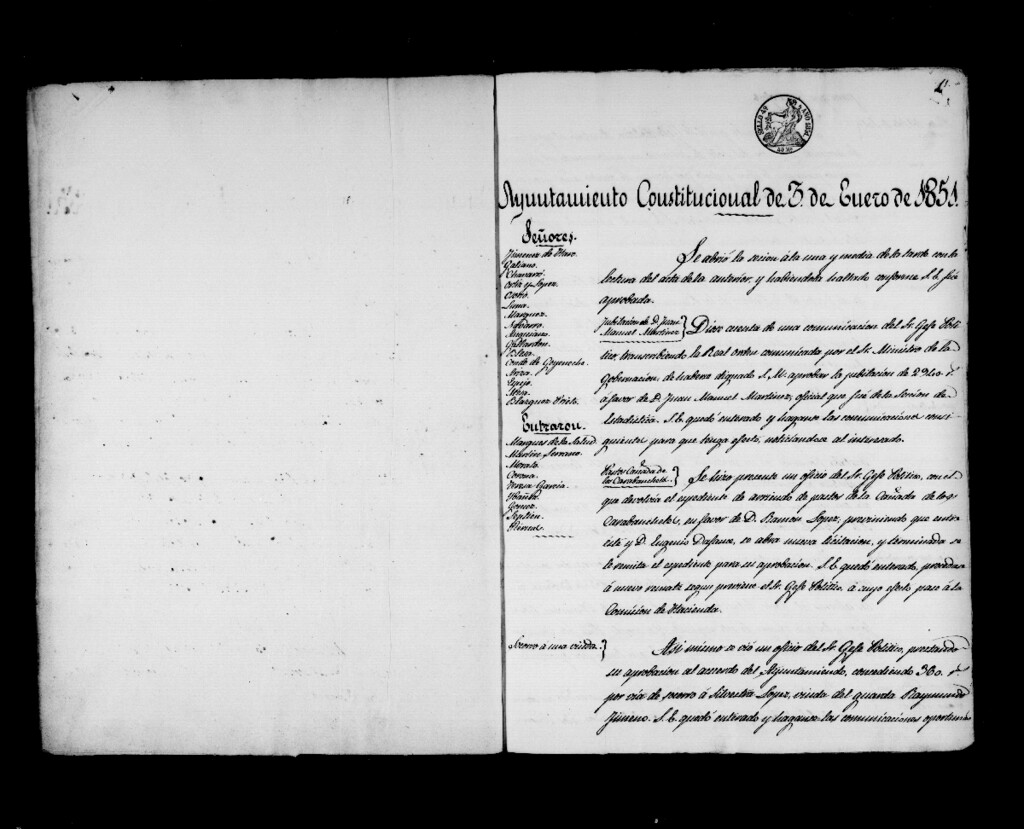 1.
SELLO 4º AÑO 1851.
40 Mº
Ayuntamiento Constitucional de 3. de Enero de 1851.
Señores.
Jimenez de Haro.
Galiano.
Chavarri.
Ortiz y Lopez.
Osorio.
Lima.
Marquez.
Navarro.
Anguiano.
Gallardon.
Conde de Goyeneche.
Espejo.
Blazquez Prieto.
Entraron.
Marques de la Salud
Martin Serrano.
Morata.
Corona.
Perez Garcia.
Ibañez.
Gomez.
Septien.
Se abrió la sesion á la una y media de la tarde con la
lectura del acta de la anterior, y habiendola hallado conforme S.E. fué
aprobada.
Jubilacion de D. Juan
Manuel Martinez}
Diose cuenta de una comunicacion del Sr. Gefe Poli-
tico, transcribiendo la Real orden comunicada por el Sr. Ministro de la
Gobernacion, de haberse dignado S. M. aprobar la jubilacion de 2940 rs.
á favor de D. Juan Manuel Martinez, oficial que fué de la Seccion de
Estadistica. S.E. quedó enterado y haganse las comunicaciones consi-
guientes para que tenga efecto, noticiandose al interesado.
Pastos Cañada de
los Carabancheles.}
Se hizo presente un oficio del Sr. Gefe Politico, con el
que devolvia el espediente de arriendo de pastos de la Cañada de los
Carabancheles, en favor de D. Ramon Lopez, previniendo que entre
este y D. Eugenio se abra nueva licitacion, y terminada se
le remita el espediente para su aprobacion. S.E. quedó enterado, procedase
á nuevo remate segun previene el Sr. Gefe Politico, á cuyo efecto pase á la
Comision de Hacienda.
Socorro á una viuda.}
Asi mismo se vió un oficio del Sr. Gefe Politico, prestando
su aprobacion al acuerdo del Ayuntamiento, concediendo 360. rs.
por via de socorro á Silvestra Lopez, viuda del guarda Raymundo
Jimeno. S.E. quedó enterado y haganse las comunicaciones oportunas